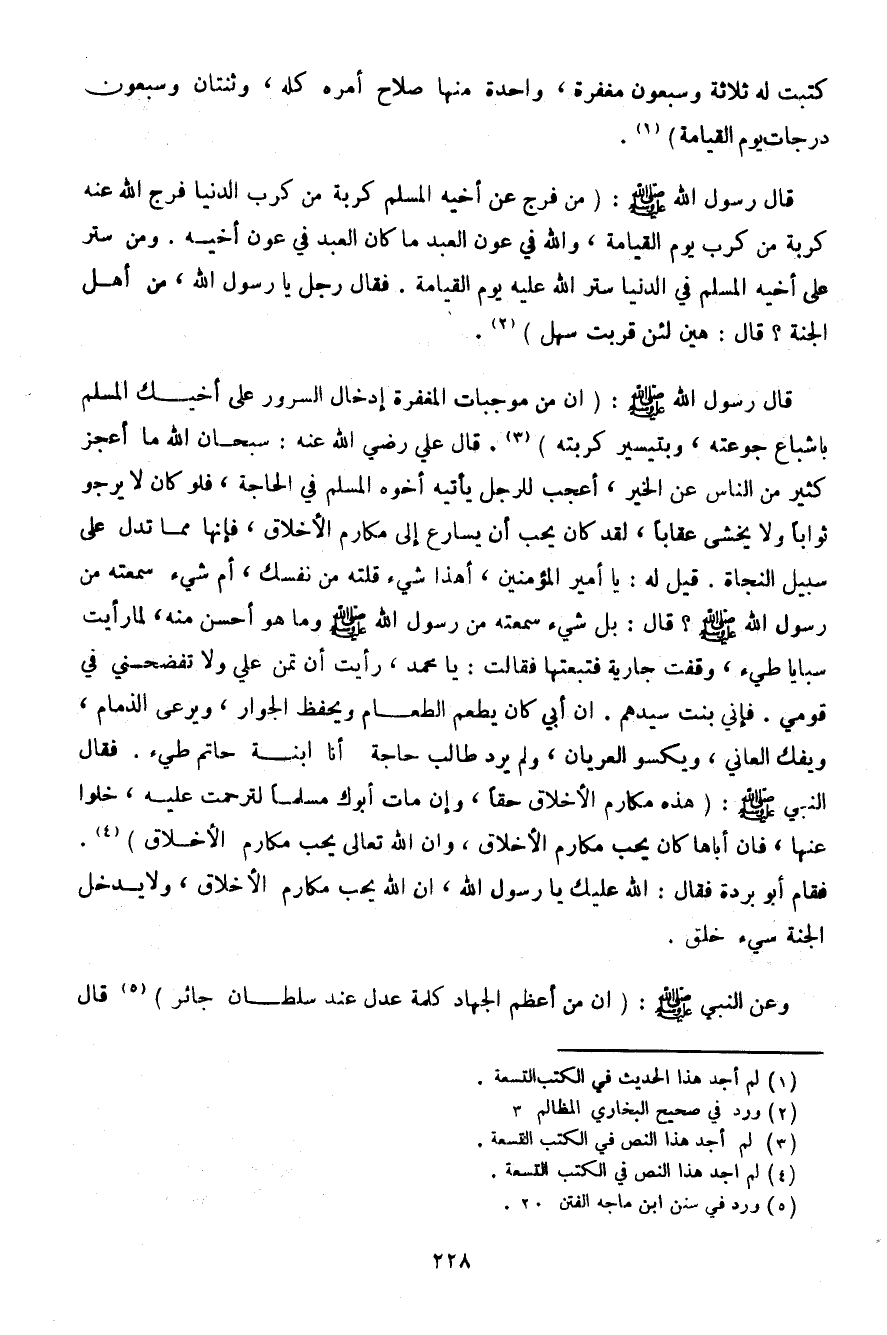 كتبت له ثلاثة وسبعون مغفرة ، واحدة منها صلاح أمره كله ، وثنتان وسبعون
درجات يوم القيامة ) (١) .
قال رسول الله ﷺ : ( من فرج عن أخيه المسلم كربة من كرب الدنيا فرج الله عنه
كربة من كرب يوم القيامة ، والله في عون العبد ما كان العبد في عون أخيه . ومن ستر
على أخيه المسلم في الدنيا ستر الله عليه يوم القيامة . فقال رجل يا رسول الله ، من أهل
الجنة ؟ قال : هين لئن قربت سهل ) (٢) .
قال رسول الله ﷺ : ( ان من موجبات المغفرة إدخال السرور على أخيك المسلم
باشباع جوعته ، وبتيسير كربته ) (٣) . قال علي رضي الله عنه : سبحان الله ما أعجز
كثير من الناس عن الخير ، أعجب للرجل يأتيه أخوه المسلم في الحاجة ، فلو كان لا يرجو
ثواباً ولا يخشى عقاباً ، لقد كان يحب أن يسارع إلى مكارم الأخلاق ، فإنها مما تدل على
سبيل النجاة . قيل له : يا أمير المؤمنين ، أهذا شيء قلته من نفسك ، أم شيء سمعته من
رسول الله ﷺ ؟ قال : بل شيء سمعته من رسول الله ﷺ وما هو أحسن منه، لما رأيت
سبايا طيء ، وقفت جارية فتبعتها فقالت : يا محمد ، رأيت أن تمن علي ولا تفضحني في
قومي . فإني بنت سيدهم . ان أبي كان يطعم الطعام ويحفظ الجوار ، ويرعى الذمام ،
ويفك العاني ، ويكسو العريان ، ولم يرد طالب حاجة أنا ابنة حاتم طيء . فقال
النبي ﷺ : ( هذه مكارم الأخلاق حقاً ، وإن مات أبوك مسلماً لترحمت عليه ، خلوا
عنها ، فان أباها كان يحب مكارم الأخلاق ، وان الله تعالى يحب مكارم الأخلاق ) (٤) .
فقام أبو بردة فقال : الله عليك يا رسول الله ، ان الله يحب مكارم الأخلاق ، ولا يدخل
الجنة سيء خلق .
وعن النبي ﷺ : ( ان من أعظم الجهاد كلمة عدل عند سلطان جائر ) (٥) قال
(١) لم أجد هذا الحديث في الكتب التسعة .
(٢) ورد في صحيح البخاري المظالم ٣
(٣) لم أجد هذا النص في الكتب التسعة .
(٤) لم اجد هذا النص في الكتب التسعة .
(٥) ورد في سنن ابن ماجه الفتن ٢٠ .
٢٢٨